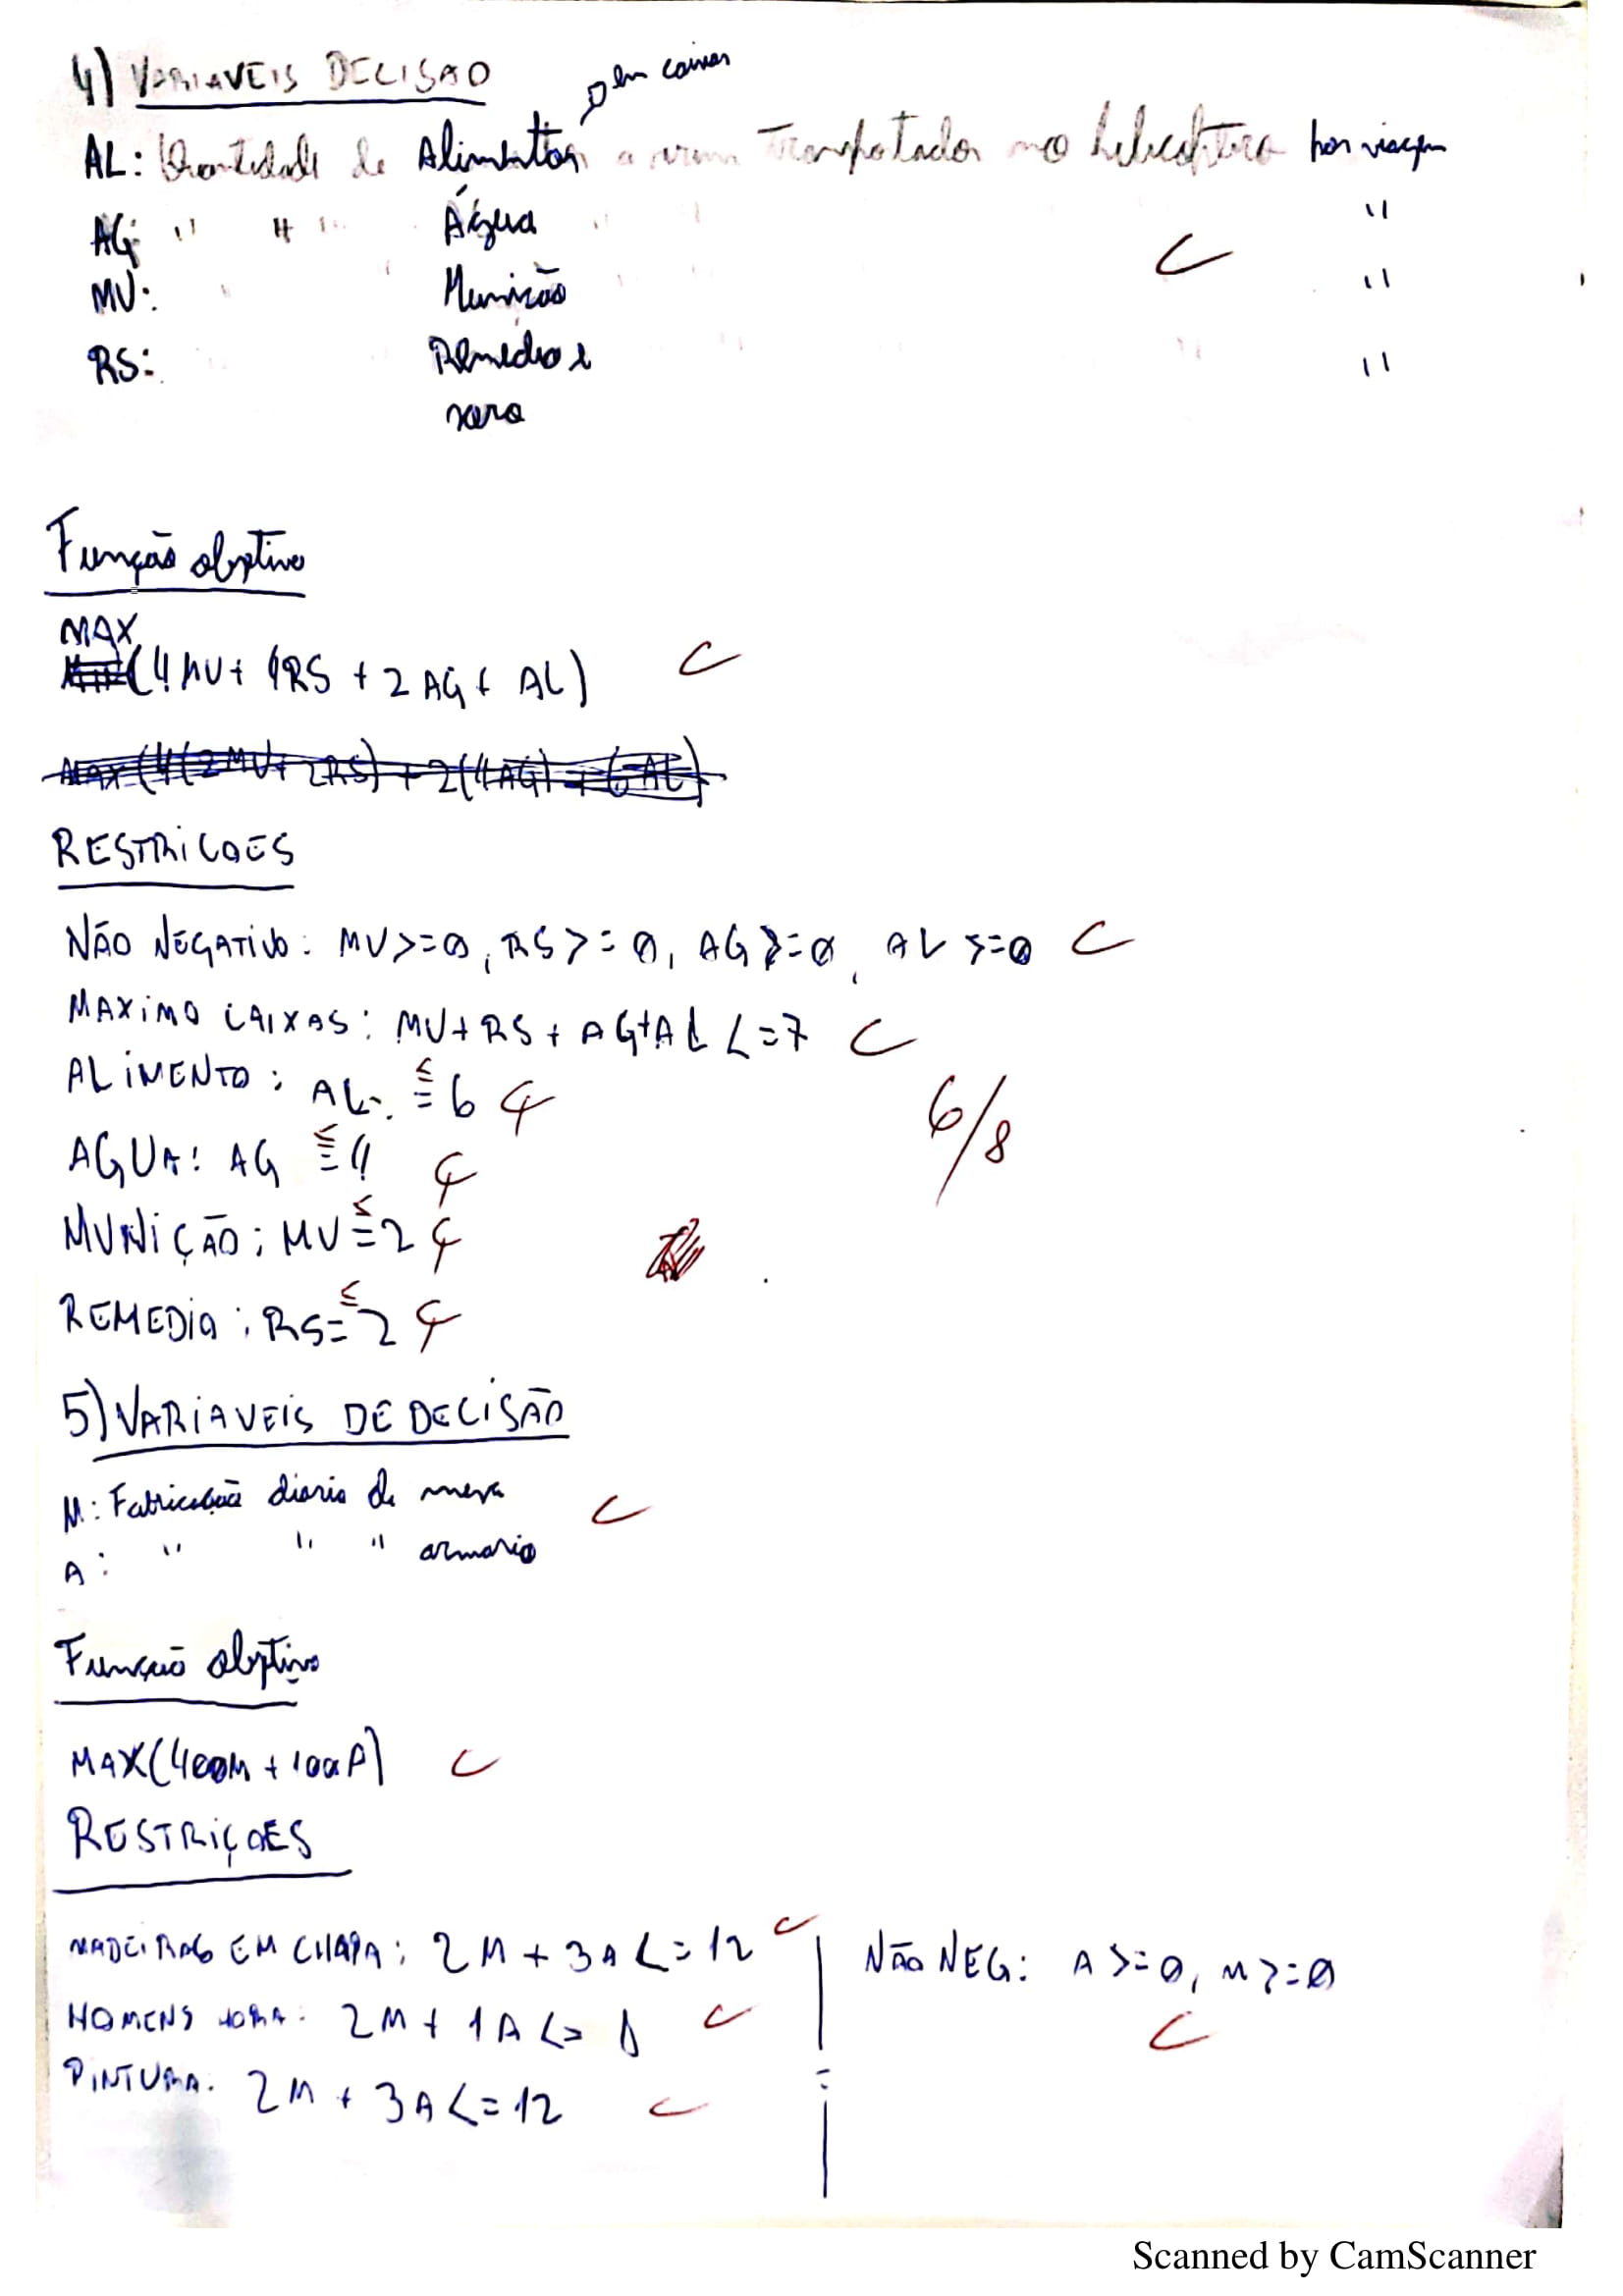 4) VARIAVEIS DECISAO
em caixas
AL: Quantidade de Alimentos a serem Transpotados no helicoptero por viagem
AG: " " " Água " "
MU: Munição "
RS: Remedio e " "
soro
Função objetivo
MAX
(4MU+ 4RS + 2AG + AL) C
MAX (4(2MU+ 2RS) + 2(4AG) + 6AL)
RESTRICOES
NÃO NEGATIVO: MU>=0, RS>=0, AG>=0, AL>=0 C
MAXIMO CAIXAS: MU+RS+AG+AL <=7 C
ALIMENTO: AL ≤ = 6 C
AGUA: AG ≤ = 4 C
6/8
MUNIÇÃO: MU ≤ = 2 C
REMEDIO: RS ≤ = 2 C
5) VARIAVEIS DE DECISÃO
M: Fabricação diaria de mesa C
A: " " " armario
Função objetivo
MAX(400M + 100A) C
RESTRIÇOES
MADEIRAS EM CHAPA: 2M + 3A <= 12 C
NÃO NEG: A >= 0, M >= 0 C
HOMENS HORA: 2M + 1A <= 8 C
PINTURA: 2M + 3A <= 12 C
Scanned by CamScanner